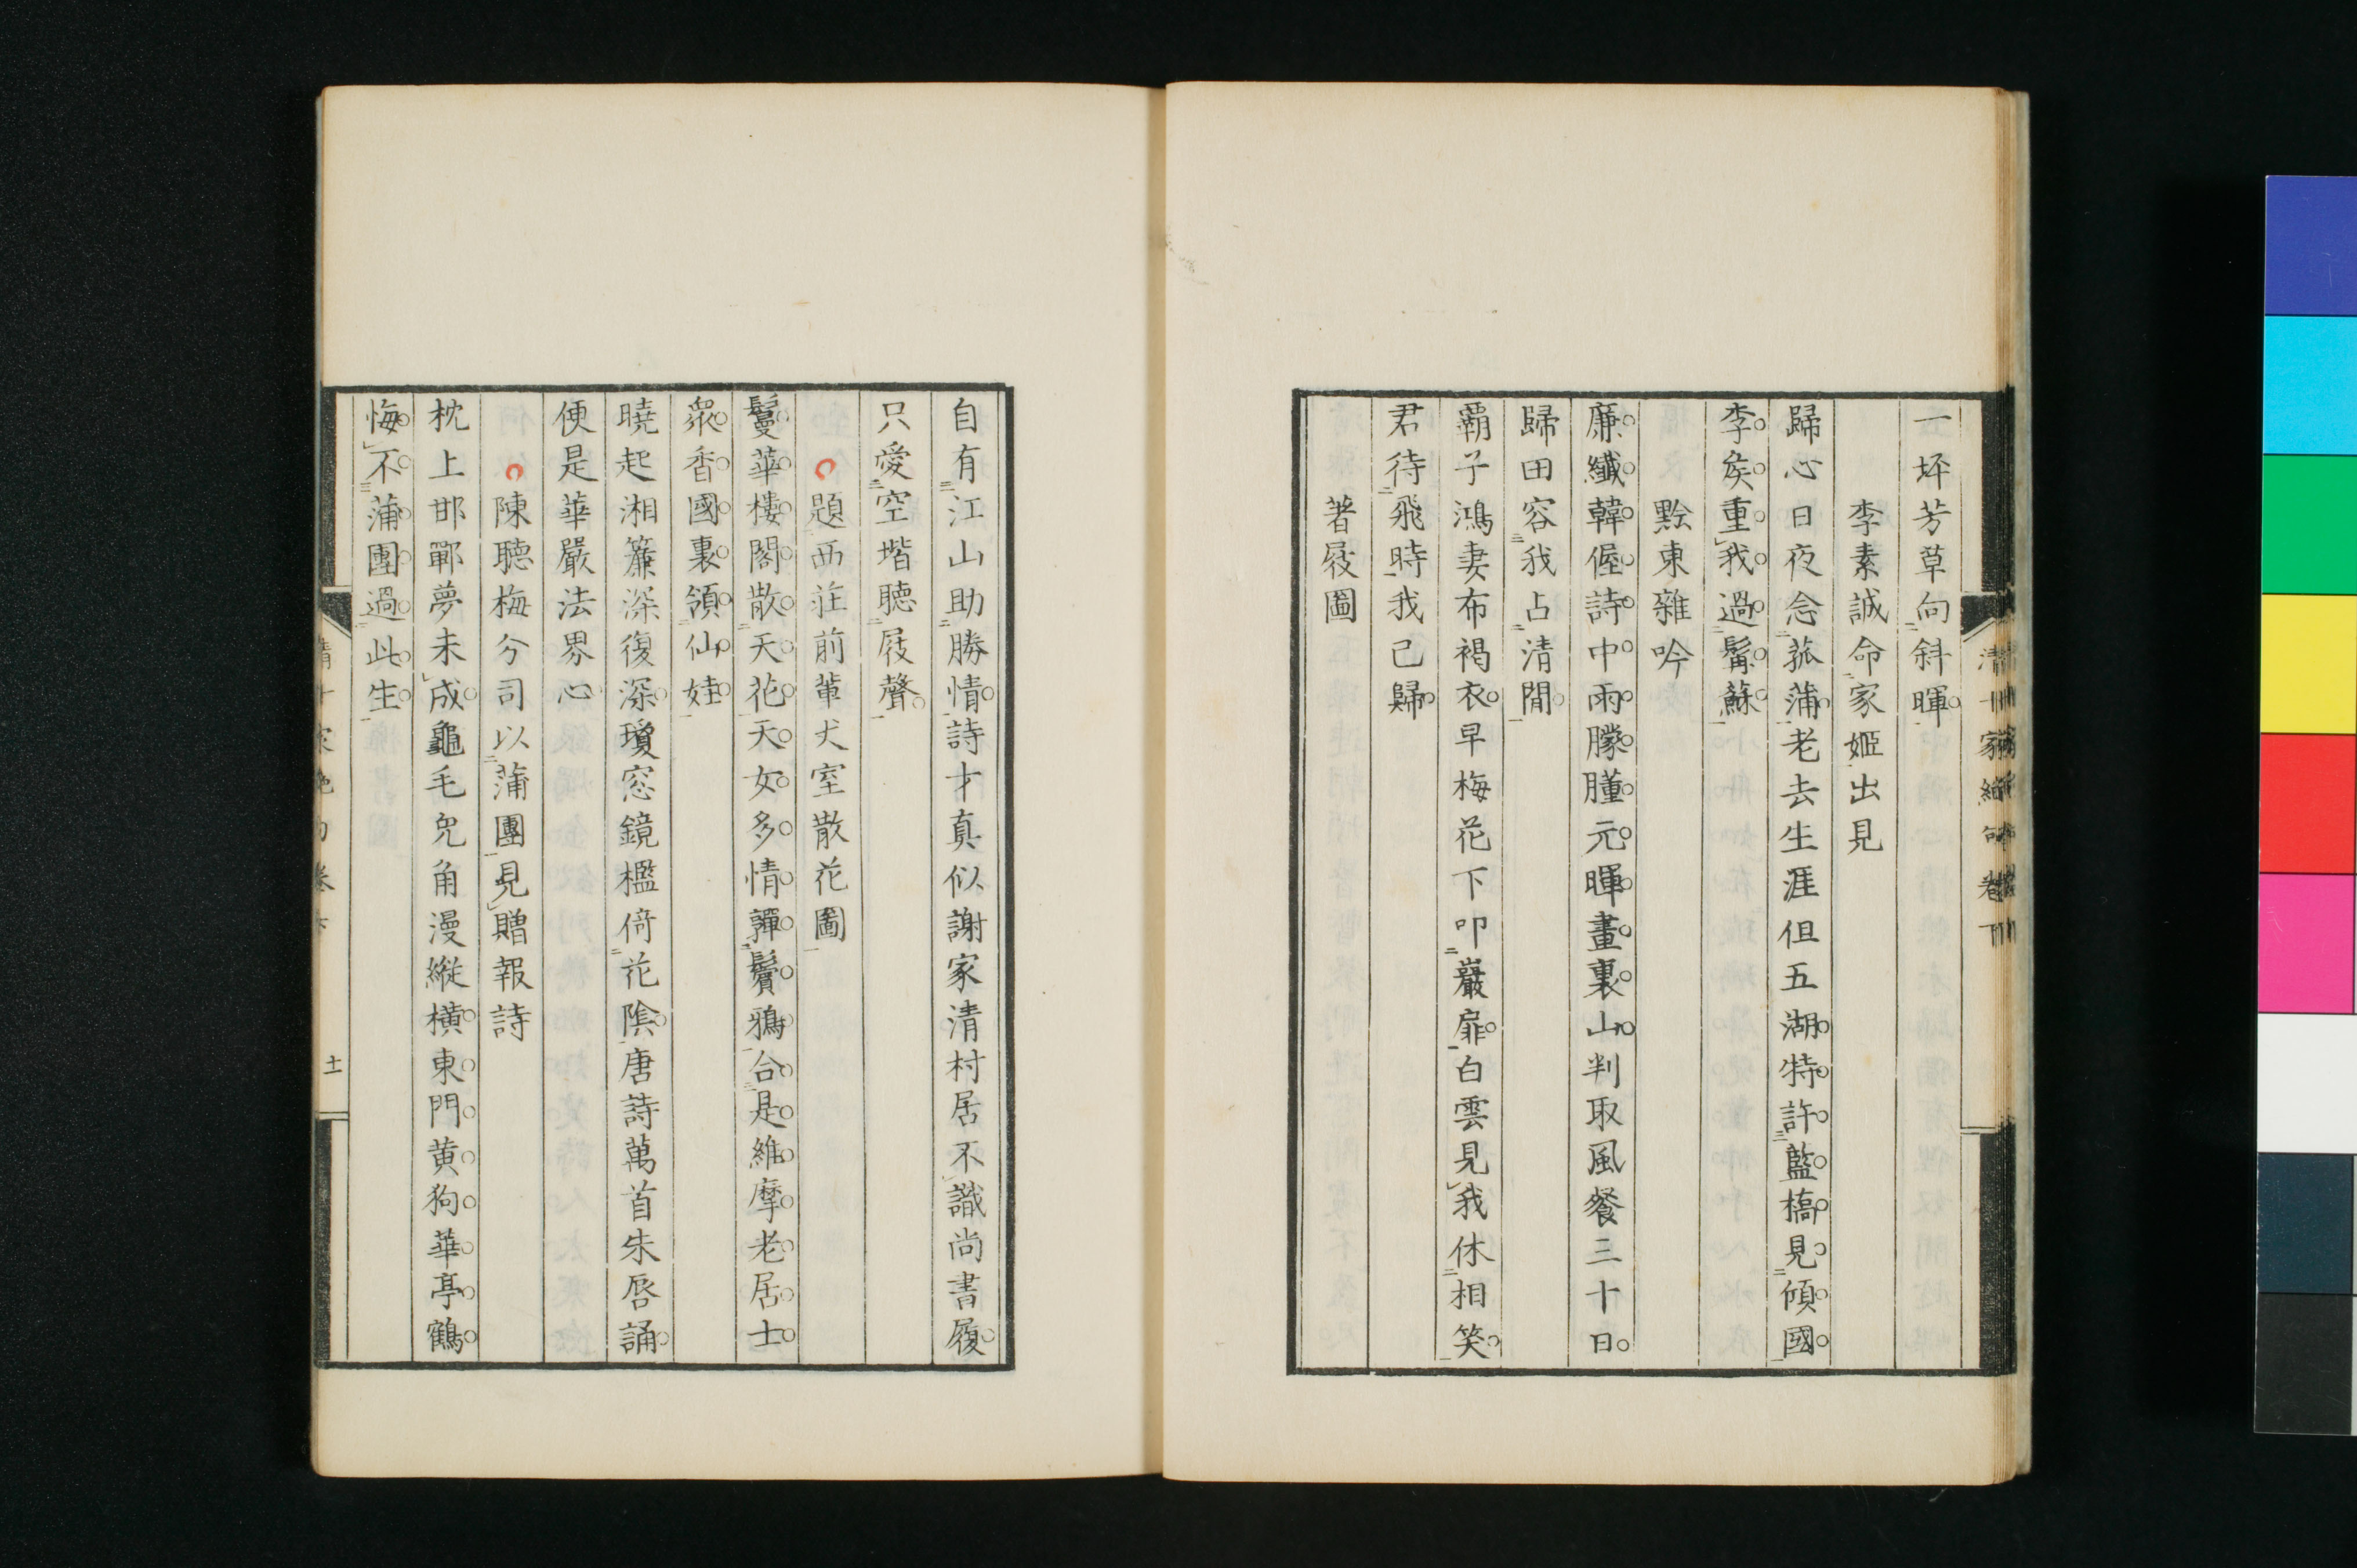 一坪芳草向斜暉
李素誠命家姬出見
歸心日夜念菰蒲老去生涯但五湖特許藍橋見傾國
李矦重我過髯蘇
黔東雜吟
廉纖韓偓詩中雨朦朣元暉畫裏山判取風餐三十日
歸田容我占清閒
霸子鴻妻布褐衣早梅花下叩巖扉白雲見我休相笑
君待飛時我已歸
著屐圖
自有江山助勝情詩才真似謝家清村居不識尚書履
只愛空堦聽屐聲
題西莊前輩犬室散花圖
鬘華樓閣散天花天女多情嚲鬢鴉合是維摩老居士
衆香國裏領仙娃
曉起湘簾深復深瓊窓鏡檻倚花陰唐詩萬首朱唇誦
便是華嚴法界心
陳聽梅分司以蒲團見贈報詩
枕上邯鄲夢未成龜毛兕角漫縱橫東門黄狗華亭鶴
悔不蒲團過此生
十一